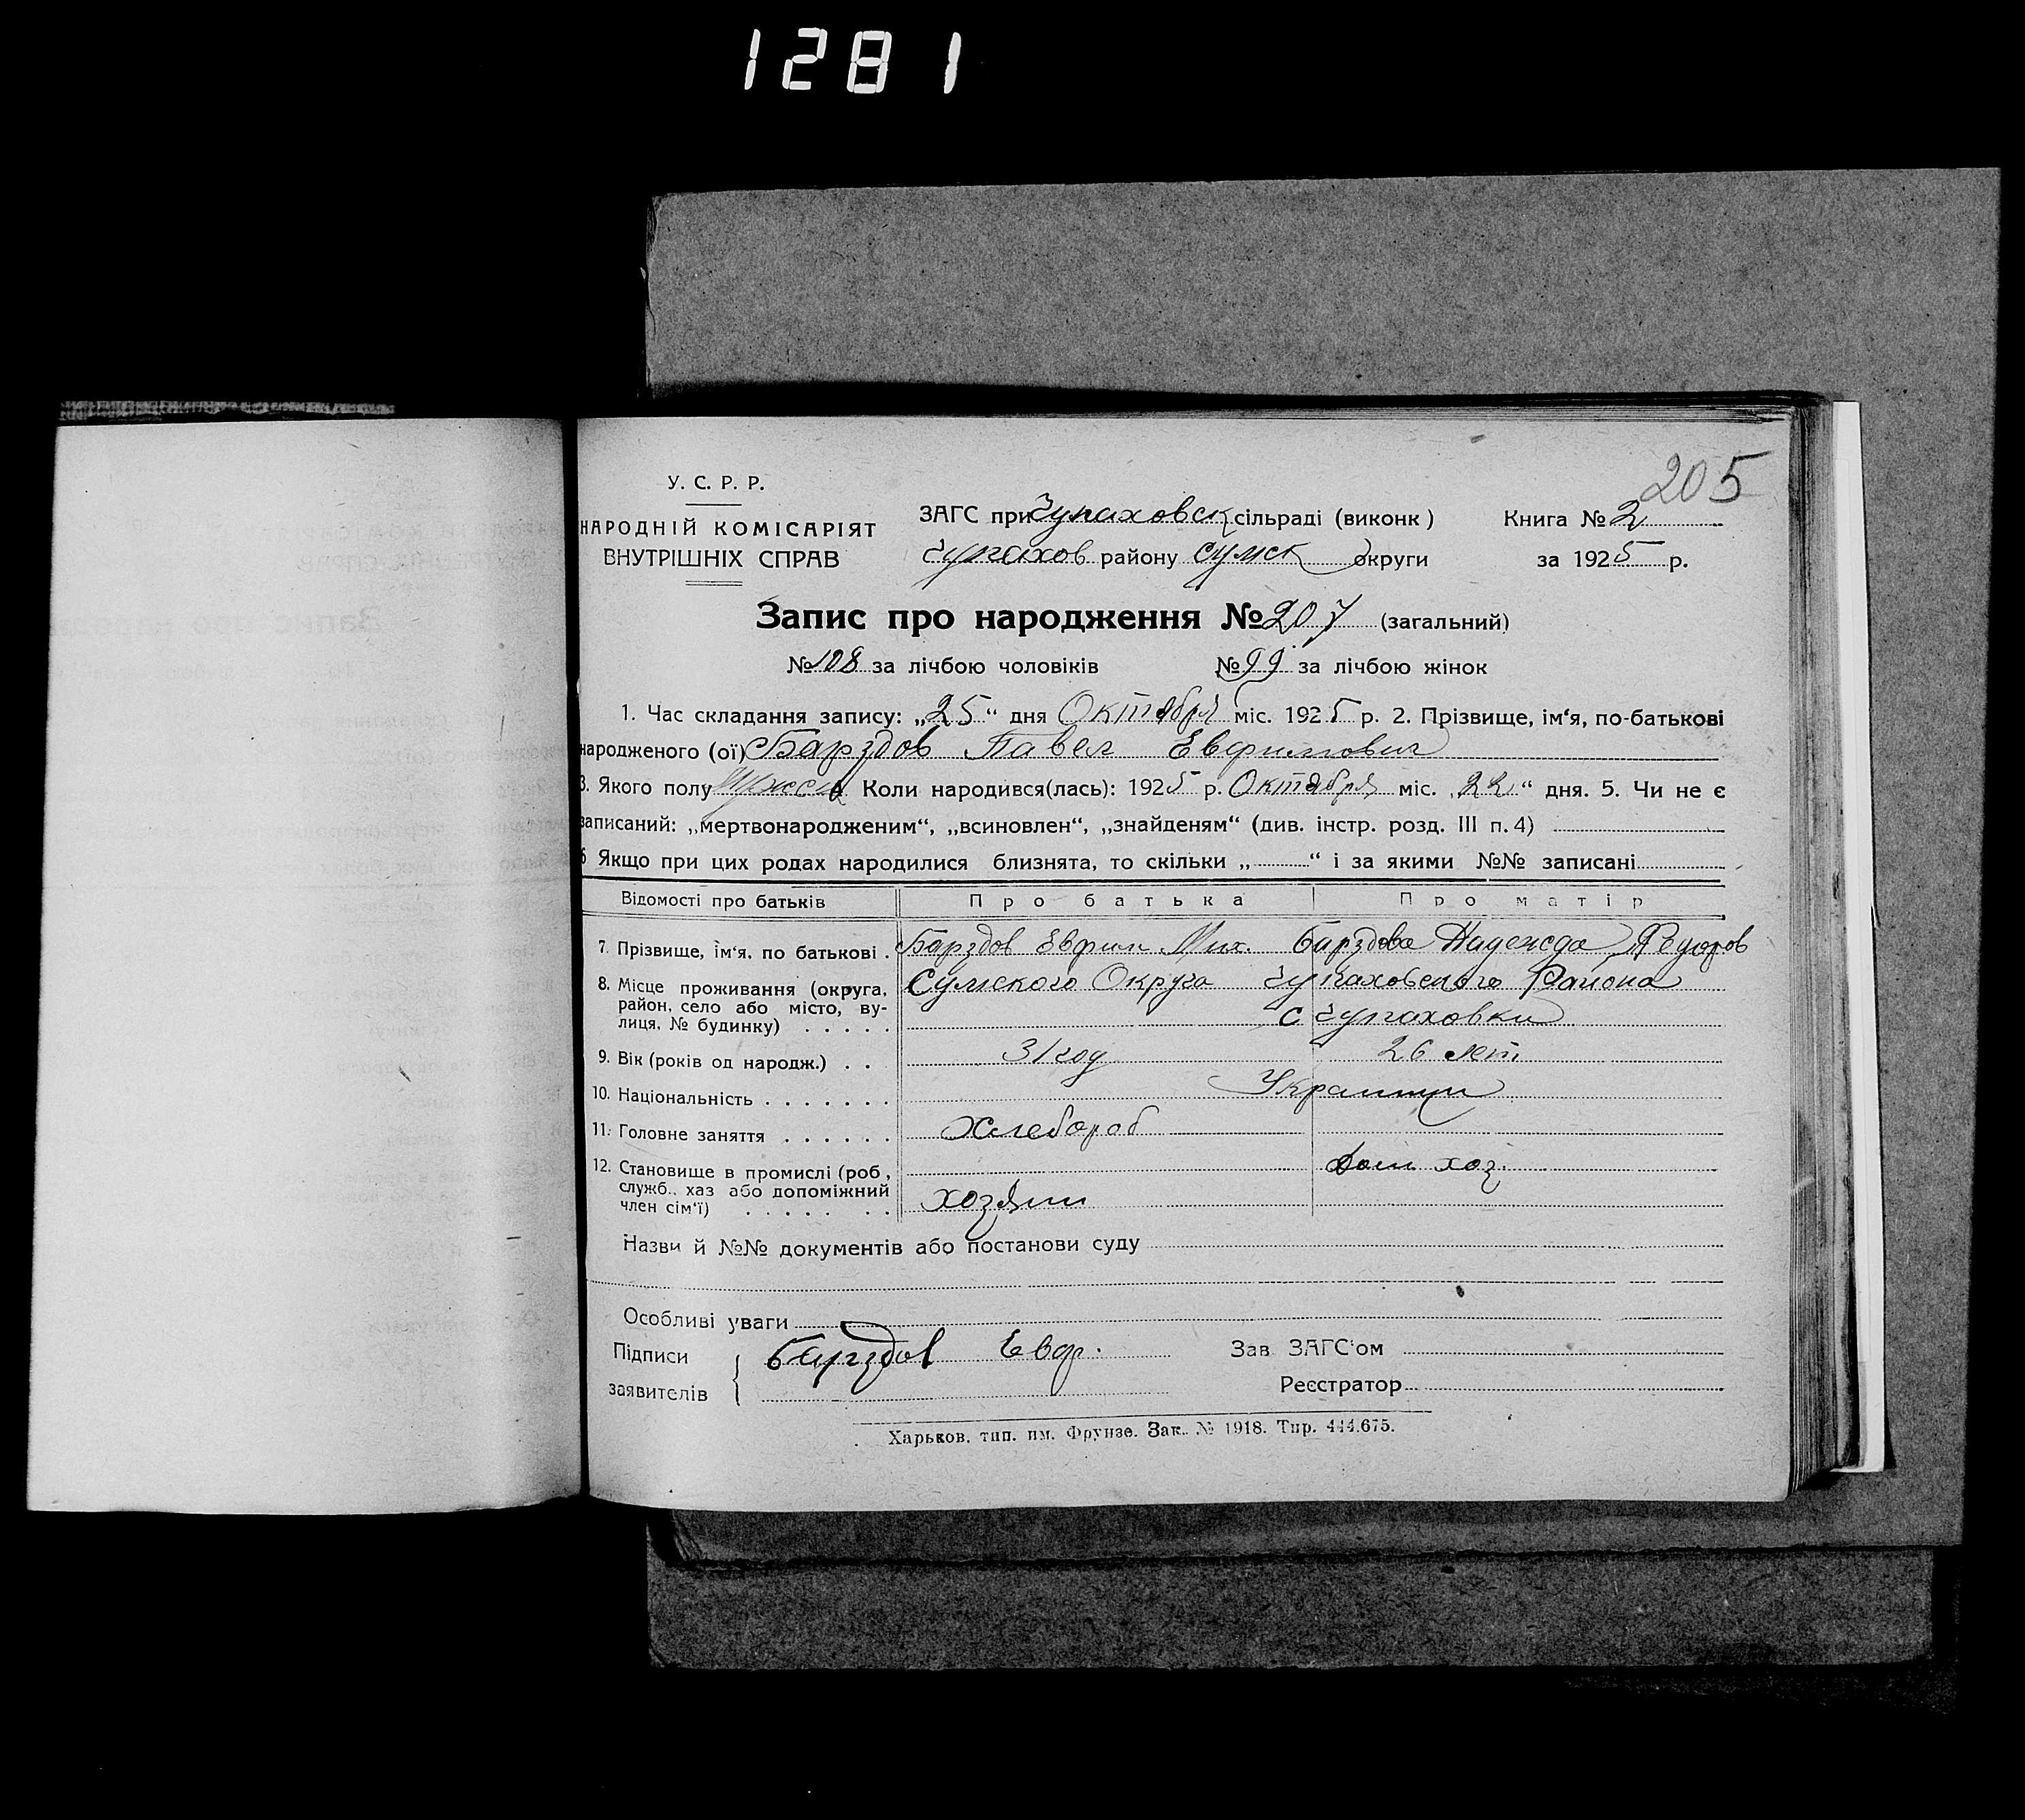 1281
205
У. С. Р. Р.
НАРОДНІЙ КОМІСАРІЯТ
ВНУТРІШНІХ СПРАВ
ЗАГС при Чупаховск сільраді (виконк)
Чупахов району Сумск округи
Книга № 2
за 1925 р.
Запис про народження № 207 (загальний)
№ 108 за лічбою чоловіків № 99 за лічбою жінок
1. Час складання запису: „25“ дня Октября міс. 1925 р. 2. Прізвище, ім‘я, по-батькові
народженого (ої) Барздов Павел Евфимович
3. Якого полу Мужск Коли народився(лась): 1925 р. Октября міс. „22“ дня. 5. Чи не є
записаний: „мертвонародженим“, „всиновлен“, „знайденям“ (див. інстр. розд. III п. 4)
6 Якщо при цих родах народилися близнята, то скільки „ “ і за якими №№ записані
Відомості про батьків Про батька Про матір
7. Прізвище, ім‘я, по батькові . Барздов Евфим Мих. Барздова Надежда Федоров
8. Місце проживання (округа, Сумского Округа Чупаховского Района
район, село або місто, ву-
лиця, № будинку) . . . . . с Чупаховки
9. Вік (років од народж.) . . 31 год 26 лет
10. Національність . . . . . . . Украинцы
11. Головне заняття . . . . . . Хлебороб
12. Становище в промислі (роб, дом хоз.
служб., хаз або допоміжний
член сім‘ї) . . . . . . . хозяин
Назви й №№ документів або постанови суду
Особливі уваги
Підписи
заявителів
Барздов Евф.
Зав ЗАГС‘ом
Реєстратор
Харьков, тип. им. Фрунзе. Зак. № 1918. Тир. 444.675.